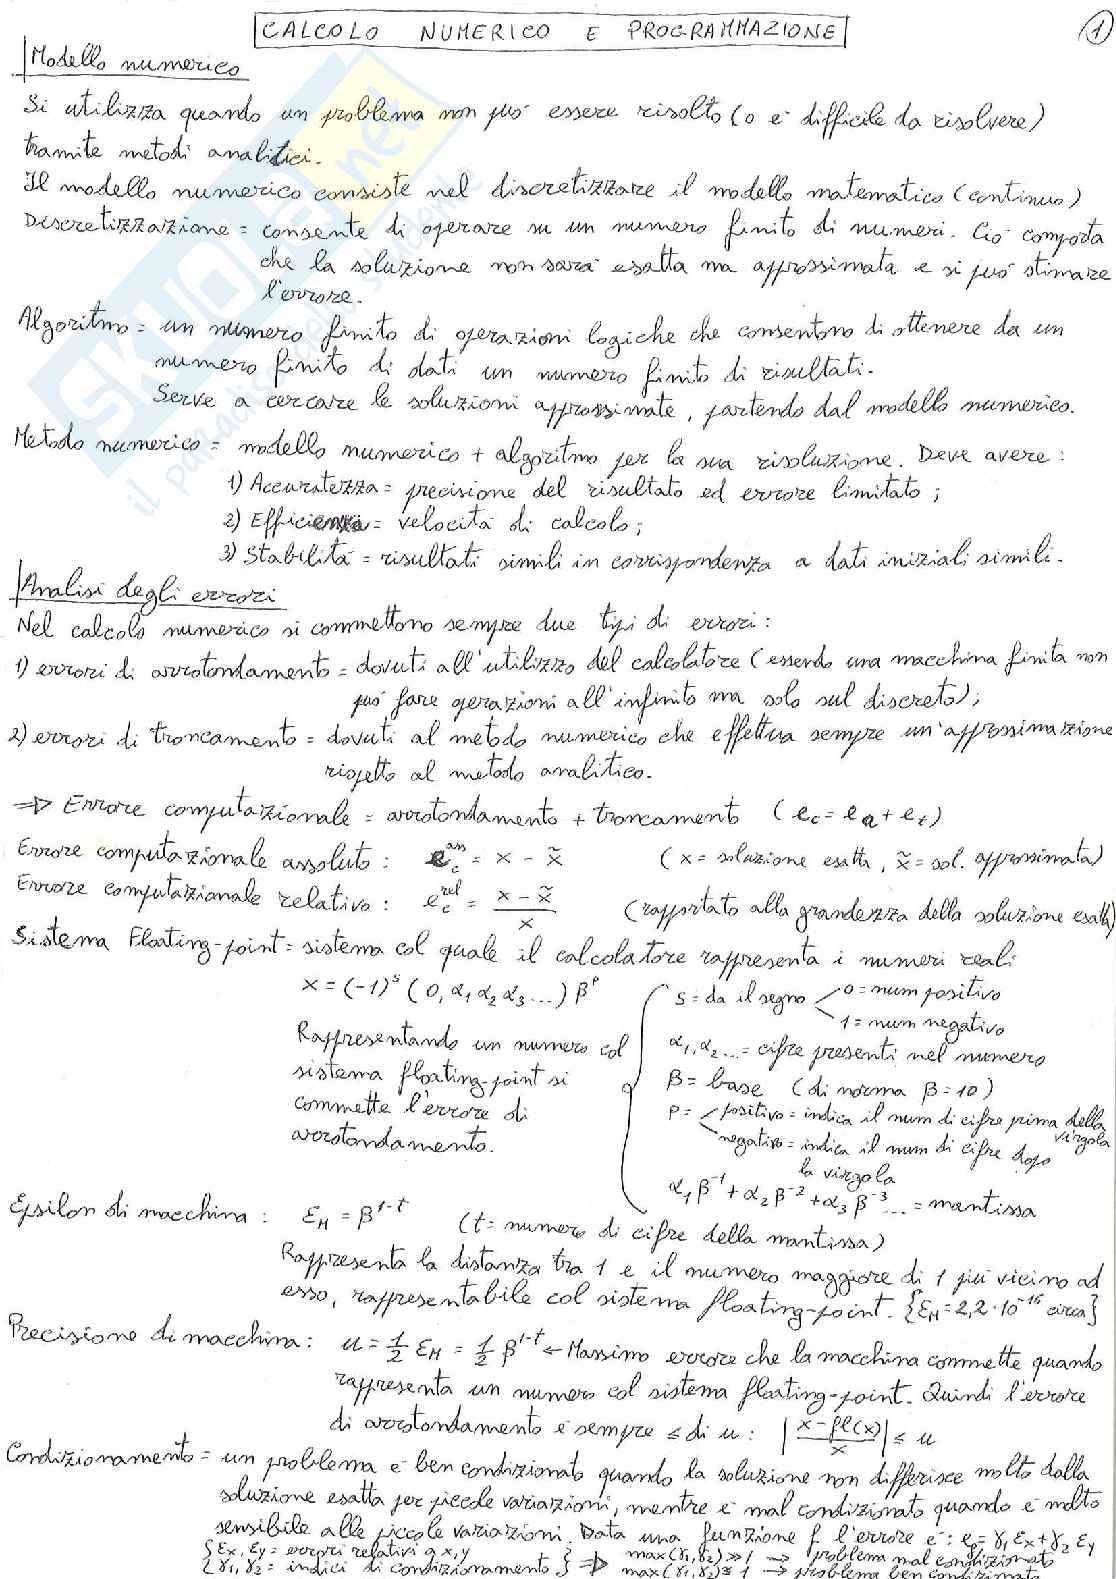 CALCOLO NUMERICO E PROGRAMMAZIONE
1
Modello numerico
Si utilizza quando un problema non può essere risolto (o è difficile da risolvere)
tramite metodi analitici.
Il modello numerico consiste nel discretizzare il modello matematico (continuo)
Discretizzazione = consente di operare su un numero finito di numeri. Ciò comporta
che la soluzione non sarà esatta ma approssimata e si può stimare
l'errore.
Algoritmo = un numero finito di operazioni logiche che consentono di ottenere da un
numero finito di dati un numero finito di risultati.
Serve a cercare le soluzioni approssimate, partendo dal modello numerico.
Metodo numerico = modello numerico + algoritmo per la sua risoluzione. Deve avere:
1) Accuratezza = precisione del risultato ed errore limitato;
2) Efficienza = velocità di calcolo;
3) Stabilità = risultati simili in corrispondenza a dati iniziali simili.
Analisi degli errori
Nel calcolo numerico si commettono sempre due tipi di errori:
1) errori di arrotondamento = dovuti all'utilizzo del calcolatore (essendo una macchina finita non
può fare operazioni all'infinito ma solo sul discreto);
2) errori di troncamento = dovuti al metodo numerico che effettua sempre un'approssimazione
rispetto al metodo analitico.
⇒ Errore computazionale = arrotondamento + troncamento (e_c = e_a + e_t)
Errore computazionale assoluto: e_c^ass = x - x̃ (x = soluzione esatta, x̃ = sol. approssimata)
Errore computazionale relativo: e_c^rel = (x - x̃)/x (rapportato alla grandezza della soluzione esatta)
Sistema Floating-point = sistema col quale il calcolatore rappresenta i numeri reali
x = (-1)^s (0, α1 α2 α3 ...) β^p
s = da il segno 0 = num positivo
1 = num negativo
Rappresentando un numero col
sistema floating-point si
commette l'errore di
arrotondamento.
α1, α2 ... = cifre presenti nel numero
β = base (di norma β = 10)
P = positivo = indica il num di cifre prima della
virgola
negativo = indica il num di cifre dopo
la virgola
α1 β^-1 + α2 β^-2 + α3 β^-3 ... = mantissa
Epsilon di macchina: ε_M = β^1-t (t = numero di cifre della mantissa)
Rappresenta la distanza tra 1 e il numero maggiore di 1 più vicino ad
esso, rappresentabile col sistema floating-point. {ε_M = 2,2·10^-16 circa}
Precisione di macchina: u = 1/2 ε_M = 1/2 β^1-t ← Massimo errore che la macchina commette quando
rappresenta un numero col sistema floating-point. Quindi l'errore
di arrotondamento è sempre ≤ di u: |(x - fl(x))/x| ≤ u
Condizionamento = un problema è ben condizionato quando la soluzione non differisce molto dalla
soluzione esatta per piccole variazioni, mentre è mal condizionato quando è molto
sensibile alle piccole variazioni. Data una funzione f l'errore è: e = γ1 εx + γ2 εy
{εx, εy = errori relativi a x, y
{γ1, γ2 = indici di condizionamento} ⇒ max(γ1, γ2) ≫ 1 → problema mal condizionato
max(γ1, γ2) ≈ 1 → problema ben condizionato
SKUOLA.net
il paradiso dello studente